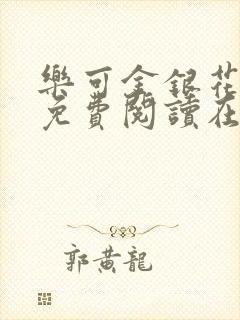 樂可金銀花
免費閱讀在
郭黃龍